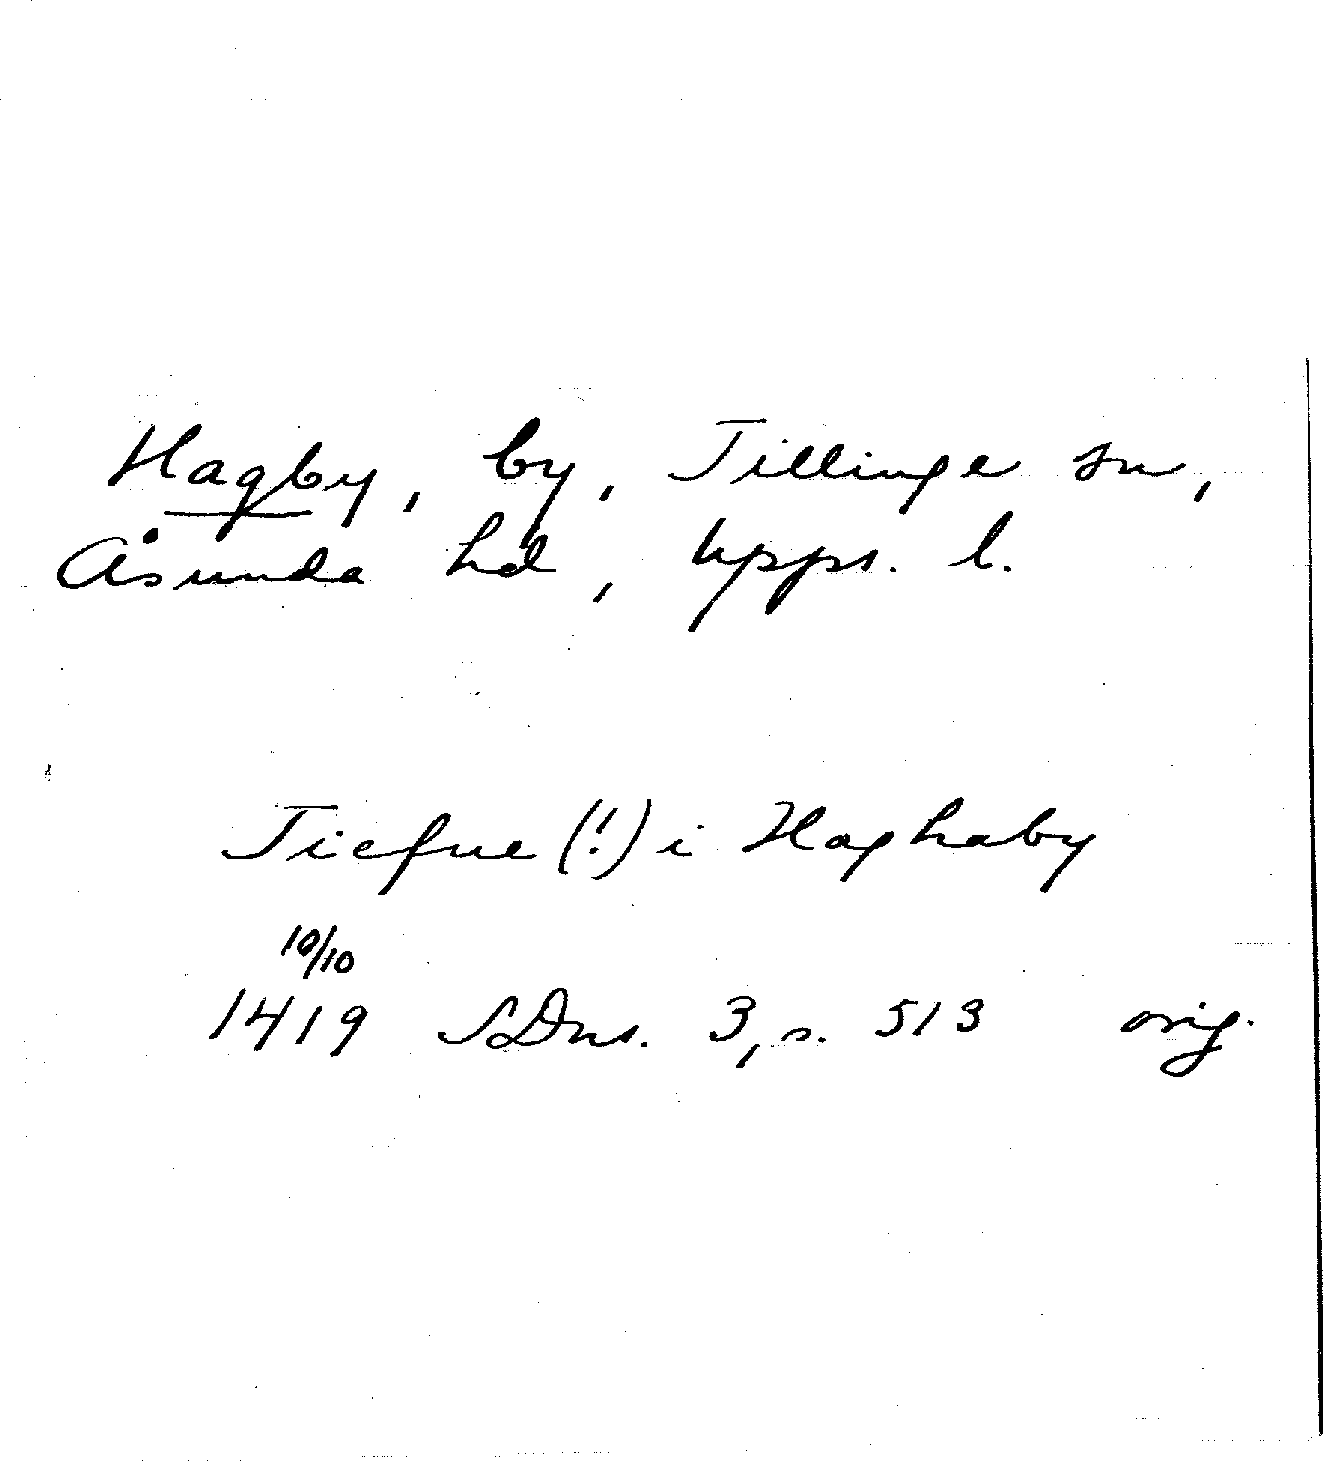 Hagby, by, Tillinge sn,
Åsunda hd, Upps. l.
Ticfue (!) i Haghaby
10/10
1419 SDns. 3, s. 513 orig.